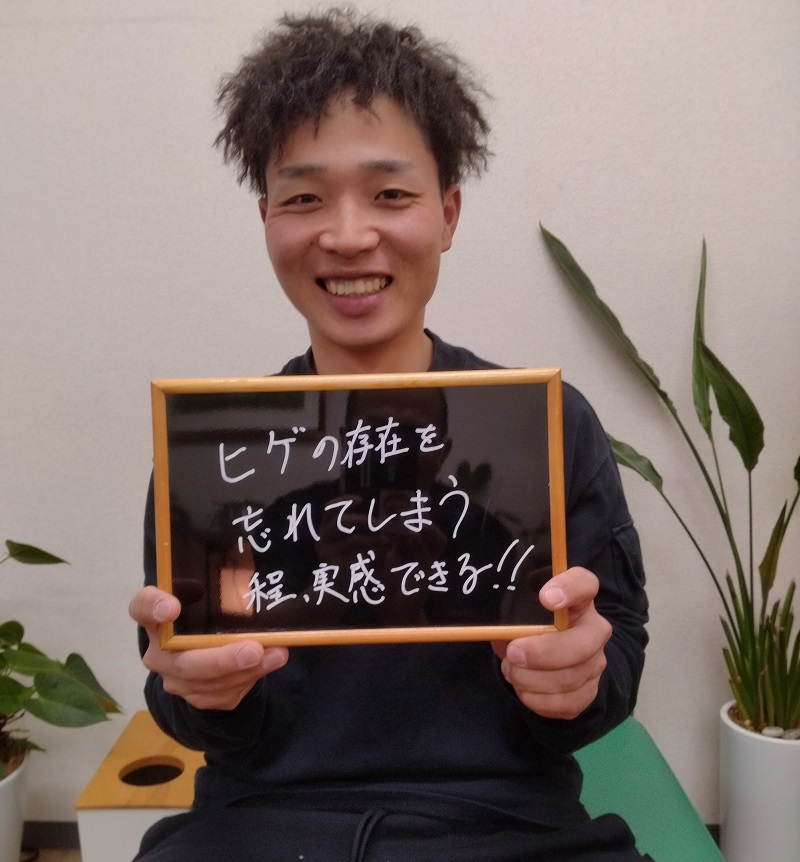 ヒゲの存在を
忘れてしまう
程、実感できる!!